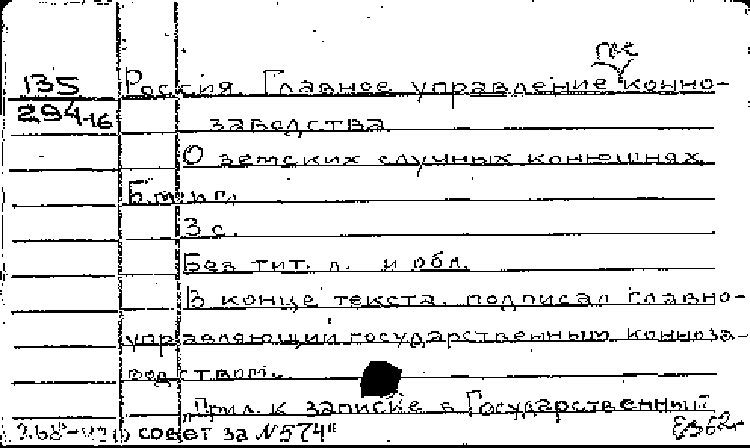 гос
135 Россия. Главное управление конно-
294-16 заводства
О земских случных конюшнях.
Б.м. и г.
3 с.
Без тит. л. и обл.
В конце текста. подписал главно-
управляющий государственным конноза-
водством.
"Прил. к записке в Государственный
совет за №574"